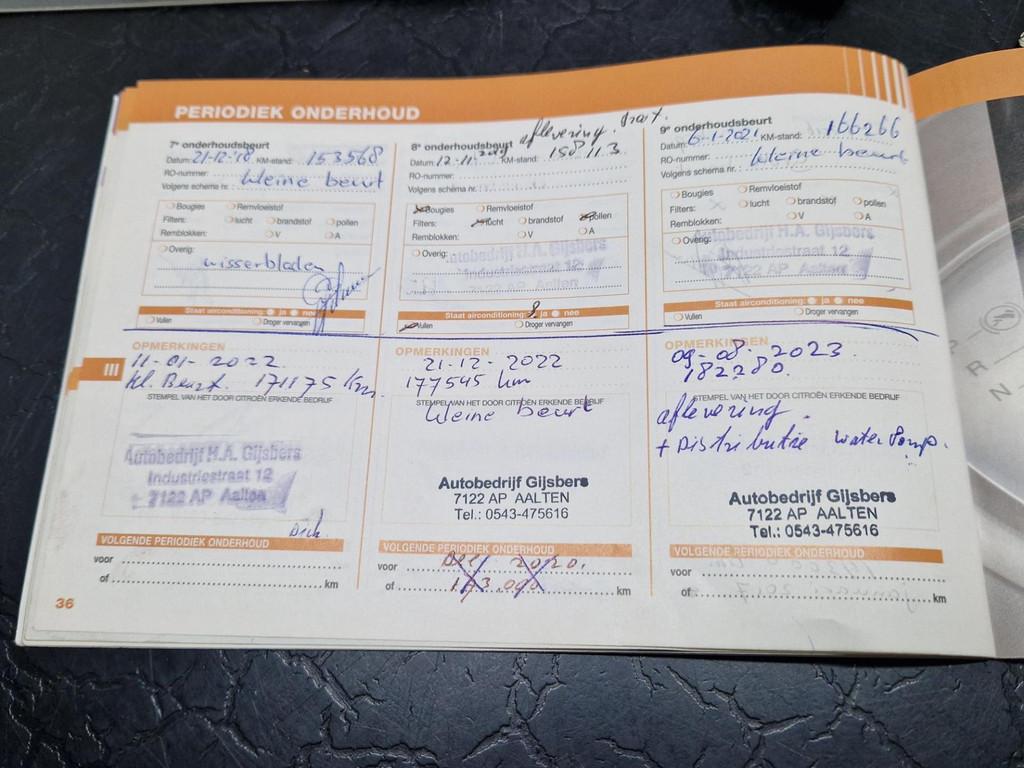 PERIODIEK ONDERHOUD
7e onderhoudsbeurt
Datum: 21-12-'18 KM-stand: 153568
RO-nummer:
kleine beurt
Volgens schema nr.:
Bougies Remvloeistof
Filters: lucht brandstof pollen
Remblokken: V A
Overig:
wisserbladen
Staat airconditioning: ja nee
Vullen Droger vervangen
OPMERKINGEN
11-01-2022
kl. Beurt. 171175 km.
STEMPEL VAN HET DOOR CITROËN ERKENDE BEDRIJF
Autobedrijf H.A. Gijsbers
Industriestraat 12
7122 AP Aalten
VOLGENDE PERIODIEK ONDERHOUD
voor
of km
aflevering.
8e onderhoudsbeurt
Datum: 12-11-2019 KM-stand: 158113
RO-nummer:
Volgens schema nr.:
Bougies Remvloeistof
Filters: lucht brandstof pollen
Remblokken: V A
Overig:
Autobedrijf H.A. Gijsbers
Industriestraat 12
7122 AP Aalten
Staat airconditioning: ja nee
Vullen Droger vervangen
OPMERKINGEN
21-12-2022
177545 km
STEMPEL VAN HET DOOR CITROËN ERKENDE BEDRIJF
kleine beurt
Autobedrijf Gijsbers
7122 AP AALTEN
Tel.: 0543-475616
VOLGENDE PERIODIEK ONDERHOUD
voor Dec 2020.
of 173.000 km
9e onderhoudsbeurt
Datum: 6-1-2021 KM-stand: 166266
RO-nummer: kleine beurt
Volgens schema nr.:
Bougies Remvloeistof
Filters: lucht brandstof pollen
Remblokken: V A
Overig:
Autobedrijf H.A. Gijsbers
Industriestraat 12
7122 AP Aalten
Staat airconditioning: ja nee
Vullen Droger vervangen
OPMERKINGEN
09-08-2023
182280.
STEMPEL VAN HET DOOR CITROËN ERKENDE BEDRIJF
aflevering.
+ Distributie waterpomp.
Autobedrijf Gijsbers
7122 AP AALTEN
Tel.: 0543-475616
VOLGENDE PERIODIEK ONDERHOUD
voor
of km
III
36
P
R
N